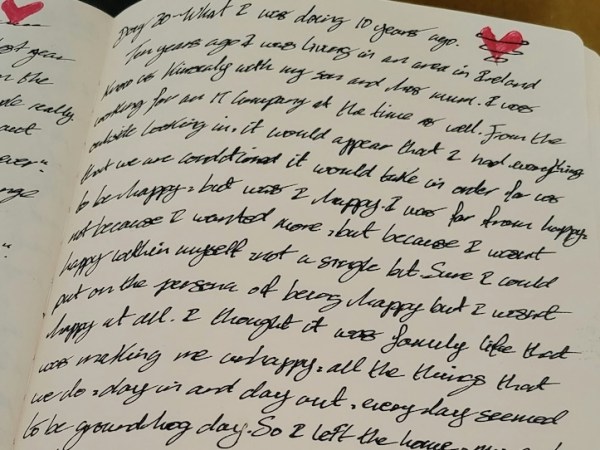 year
the
really
out
Day 30 - What I was doing 10 years ago.
Ten years ago I was living in an area in Ireland
know as Kinsealy with my son and his mum. I was
working for an IT Company at the time as well. From the
outside looking in, it would appear that I had everything
that we are conditioned it would take in order for us
to be happy, but was I happy. I was far from happy,
not because I wanted more, but because I wasnt
happy within myself, not a single bit. Sure I could
put on the persona of being happy but I wasnt
happy at all. I thought it was family life that
was making me unhappy, all the things that
we do, day in and day out, every day seemed
to be groundhog day. So I left the home,